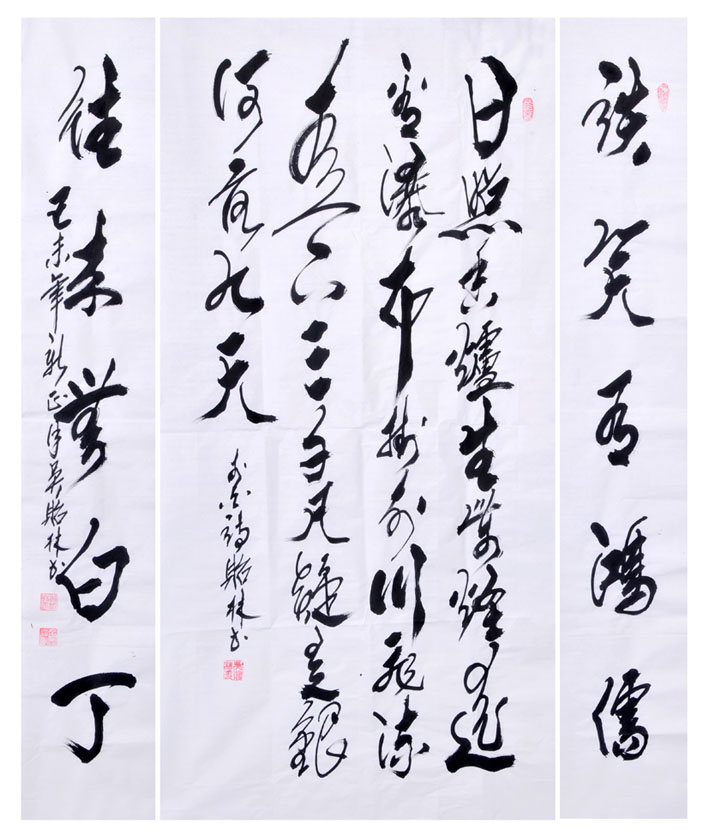 談笑有鴻儒
日照香爐生紫煙遥
看瀑布掛前川飛流
直下三千尺疑是銀
河落九天
李白詩 林书
往来無白丁
未年新正 吴 林书